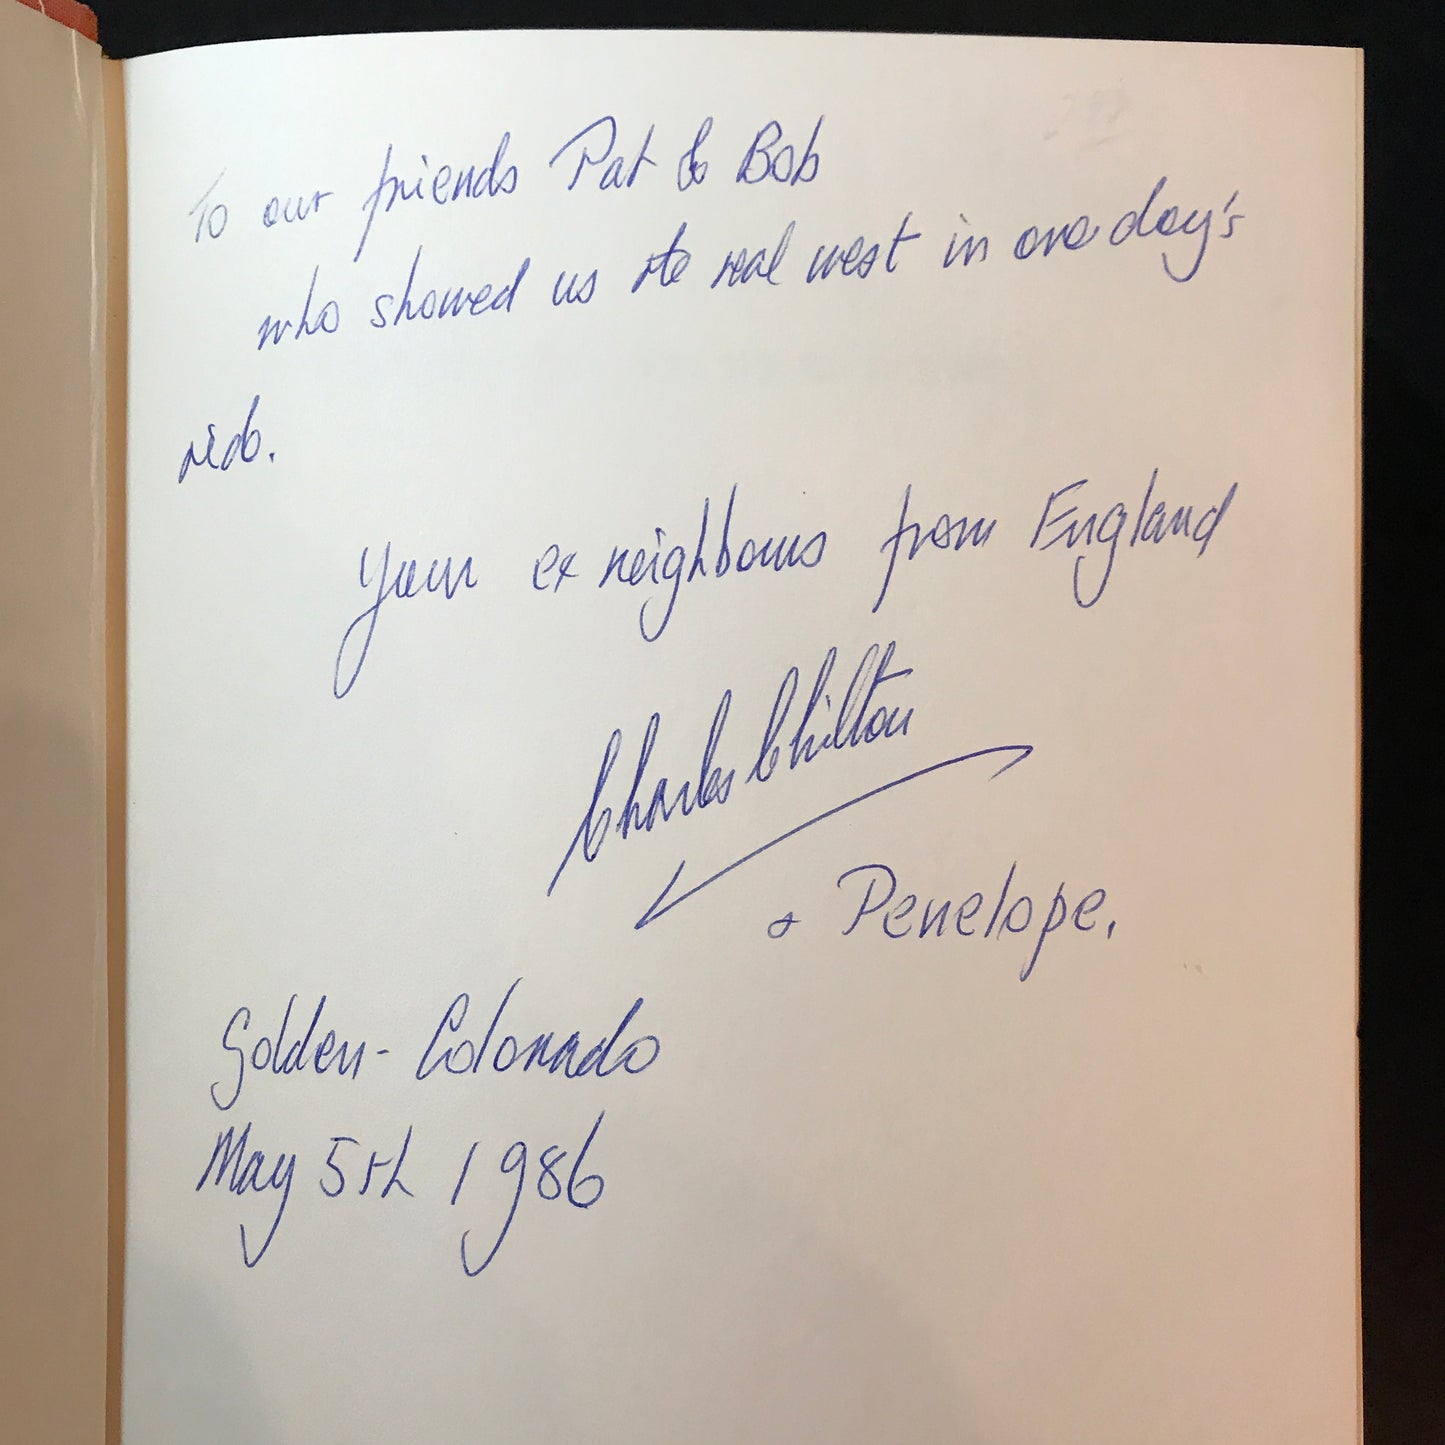 To our friends Pat & Bob
who showed us the real west in one day's
ride.
Your ex neighbours from England
Charles Chilton
& Penelope.
Golden - Colorado
May 5th 1986